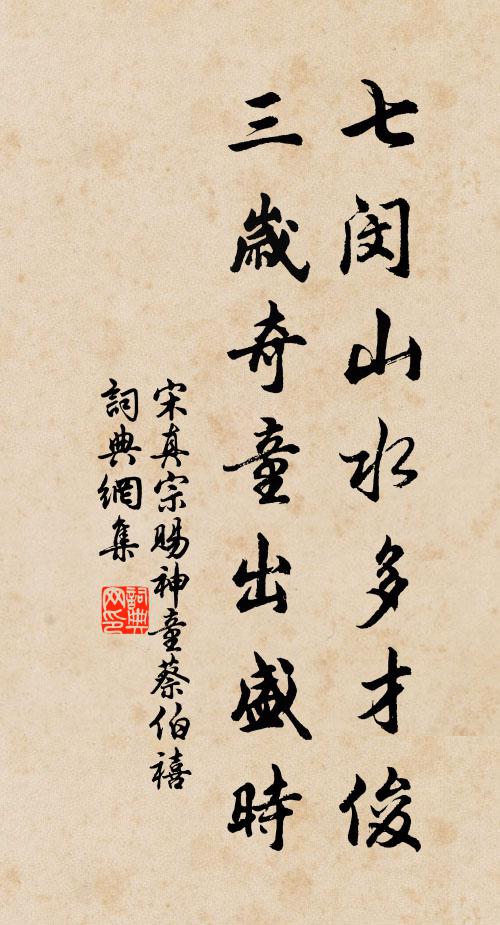 七閔山水多才俊
三歲奇童出盛時
宋真宗賜神童蔡伯禧
詞典網集
詞典
网印